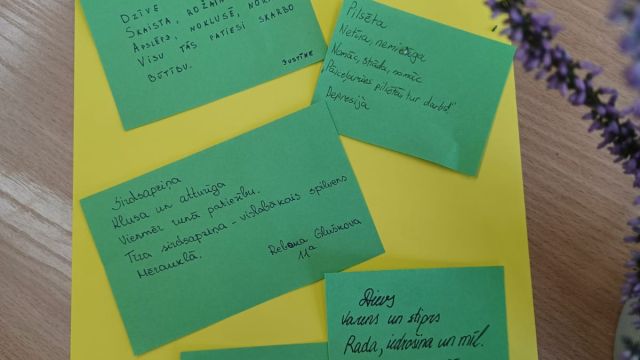 DZĪVE
SKAISTA,
APSLĒPJ, NOKLUSĒ,
VISU TĀS PATIESI SKARBO
BŪTĪBU.
JUSTĪNE
Pilsēta
Netīra, nemierīga
Nomāc, strādā, nomāc
"Pārceļamies pilsētā, tur darbs!"
Depresija
Sirdsapziņa
Klusa un atturīga
Vienmēr runā patiesību.
Tīra sirdsapziņa - vislabākais spilvens
Mērauklā.
Gluškova
11a
Dievs
Varens un stiprs
Rada, iedrošina un mīl.